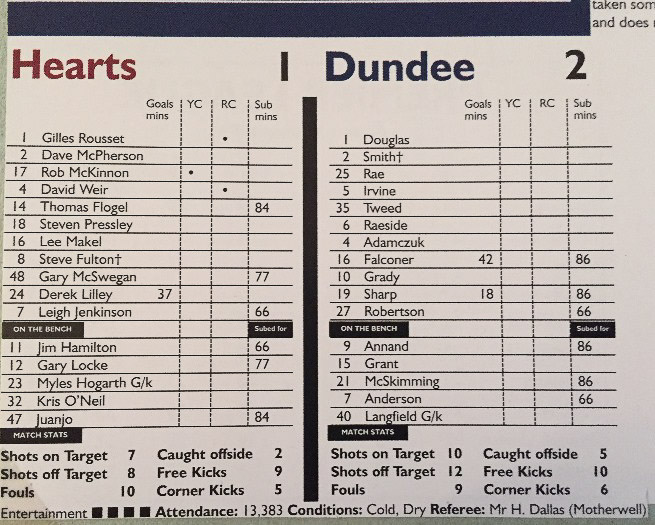 taken som
and does
Hearts 1
Goals mins YC RC Sub mins
1 Gilles Rousset •
2 Dave McPherson
17 Rob McKinnon •
4 David Weir •
14 Thomas Flogel 84
18 Steven Pressley
16 Lee Makel
8 Steve Fulton†
48 Gary McSwegan 77
24 Derek Lilley 37
7 Leigh Jenkinson 66
ON THE BENCH Subed for
11 Jim Hamilton 66
12 Gary Locke 77
23 Myles Hogarth G/k
32 Kris O'Neil
47 Juanjo 84
MATCH STATS
Shots on Target 7 Caught offside 2
Shots off Target 8 Free Kicks 9
Fouls 10 Corner Kicks 5
Dundee 2
Goals mins YC RC Sub mins
1 Douglas
2 Smith†
25 Rae
5 Irvine
35 Tweed
6 Raeside
4 Adamczuk
16 Falconer 42 86
10 Grady
19 Sharp 18 86
27 Robertson 66
ON THE BENCH Subed for
9 Annand 86
15 Grant
21 McSkimming 86
7 Anderson 66
40 Langfield G/k
MATCH STATS
Shots on Target 10 Caught offside 5
Shots off Target 12 Free Kicks 10
Fouls 9 Corner Kicks 6
Entertainment ■ ■ ■ ■ Attendance: 13,383 Conditions: Cold, Dry Referee: Mr H. Dallas (Motherwell)